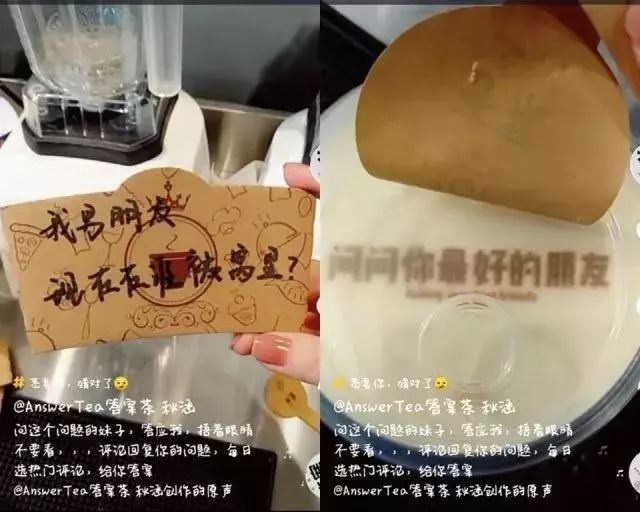 我男朋友
现在在谁被窝里?
# 恭喜你，猜对了😏
@AnswerTea答案茶 秋涵
问这个问题的妹子，答应我，捂着眼睛
不要看，，，评论回复你的问题，每日
选热门评论，给你答案
@AnswerTea答案茶 秋涵创作的原声
问问你最好的朋友
# 恭喜你，猜对了😏
@AnswerTea答案茶 秋涵
问这个问题的妹子，答应我，捂着眼睛
不要看，，，评论回复你的问题，每日
选热门评论，给你答案
@AnswerTea答案茶 秋涵创作的原声